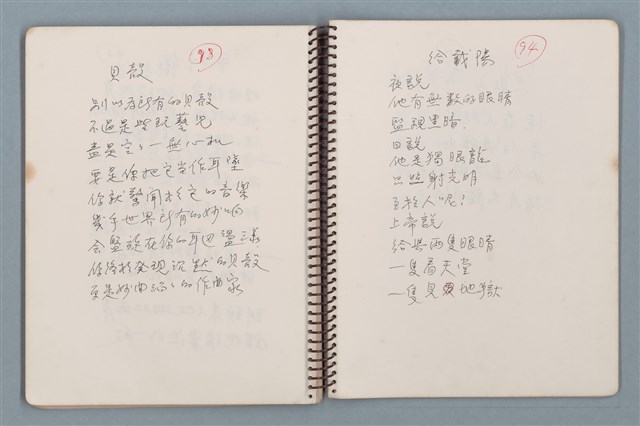 93
貝殼
別以為所有的貝殼
不過是些玩藝兒
盡是空空一無心机
要是你把它当作耳墜
你就驚聞於它的音樂
幾乎世界所有的妙响
会盤旋在你的耳边盪漾
你將於發現沉默的貝殼
更是妙曲的作曲家
94
給戴陽
夜説
他有無數的眼睛
監視黑暗.
日説
他是獨眼龍
只照射光明
至於人呢!
上帝說
給共兩隻眼睛
一隻看天堂
一隻見地獄